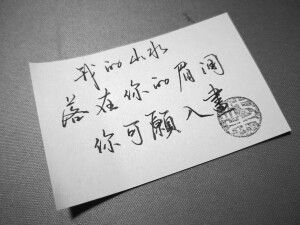 我的山水
落在你的眉间
你可願入畫